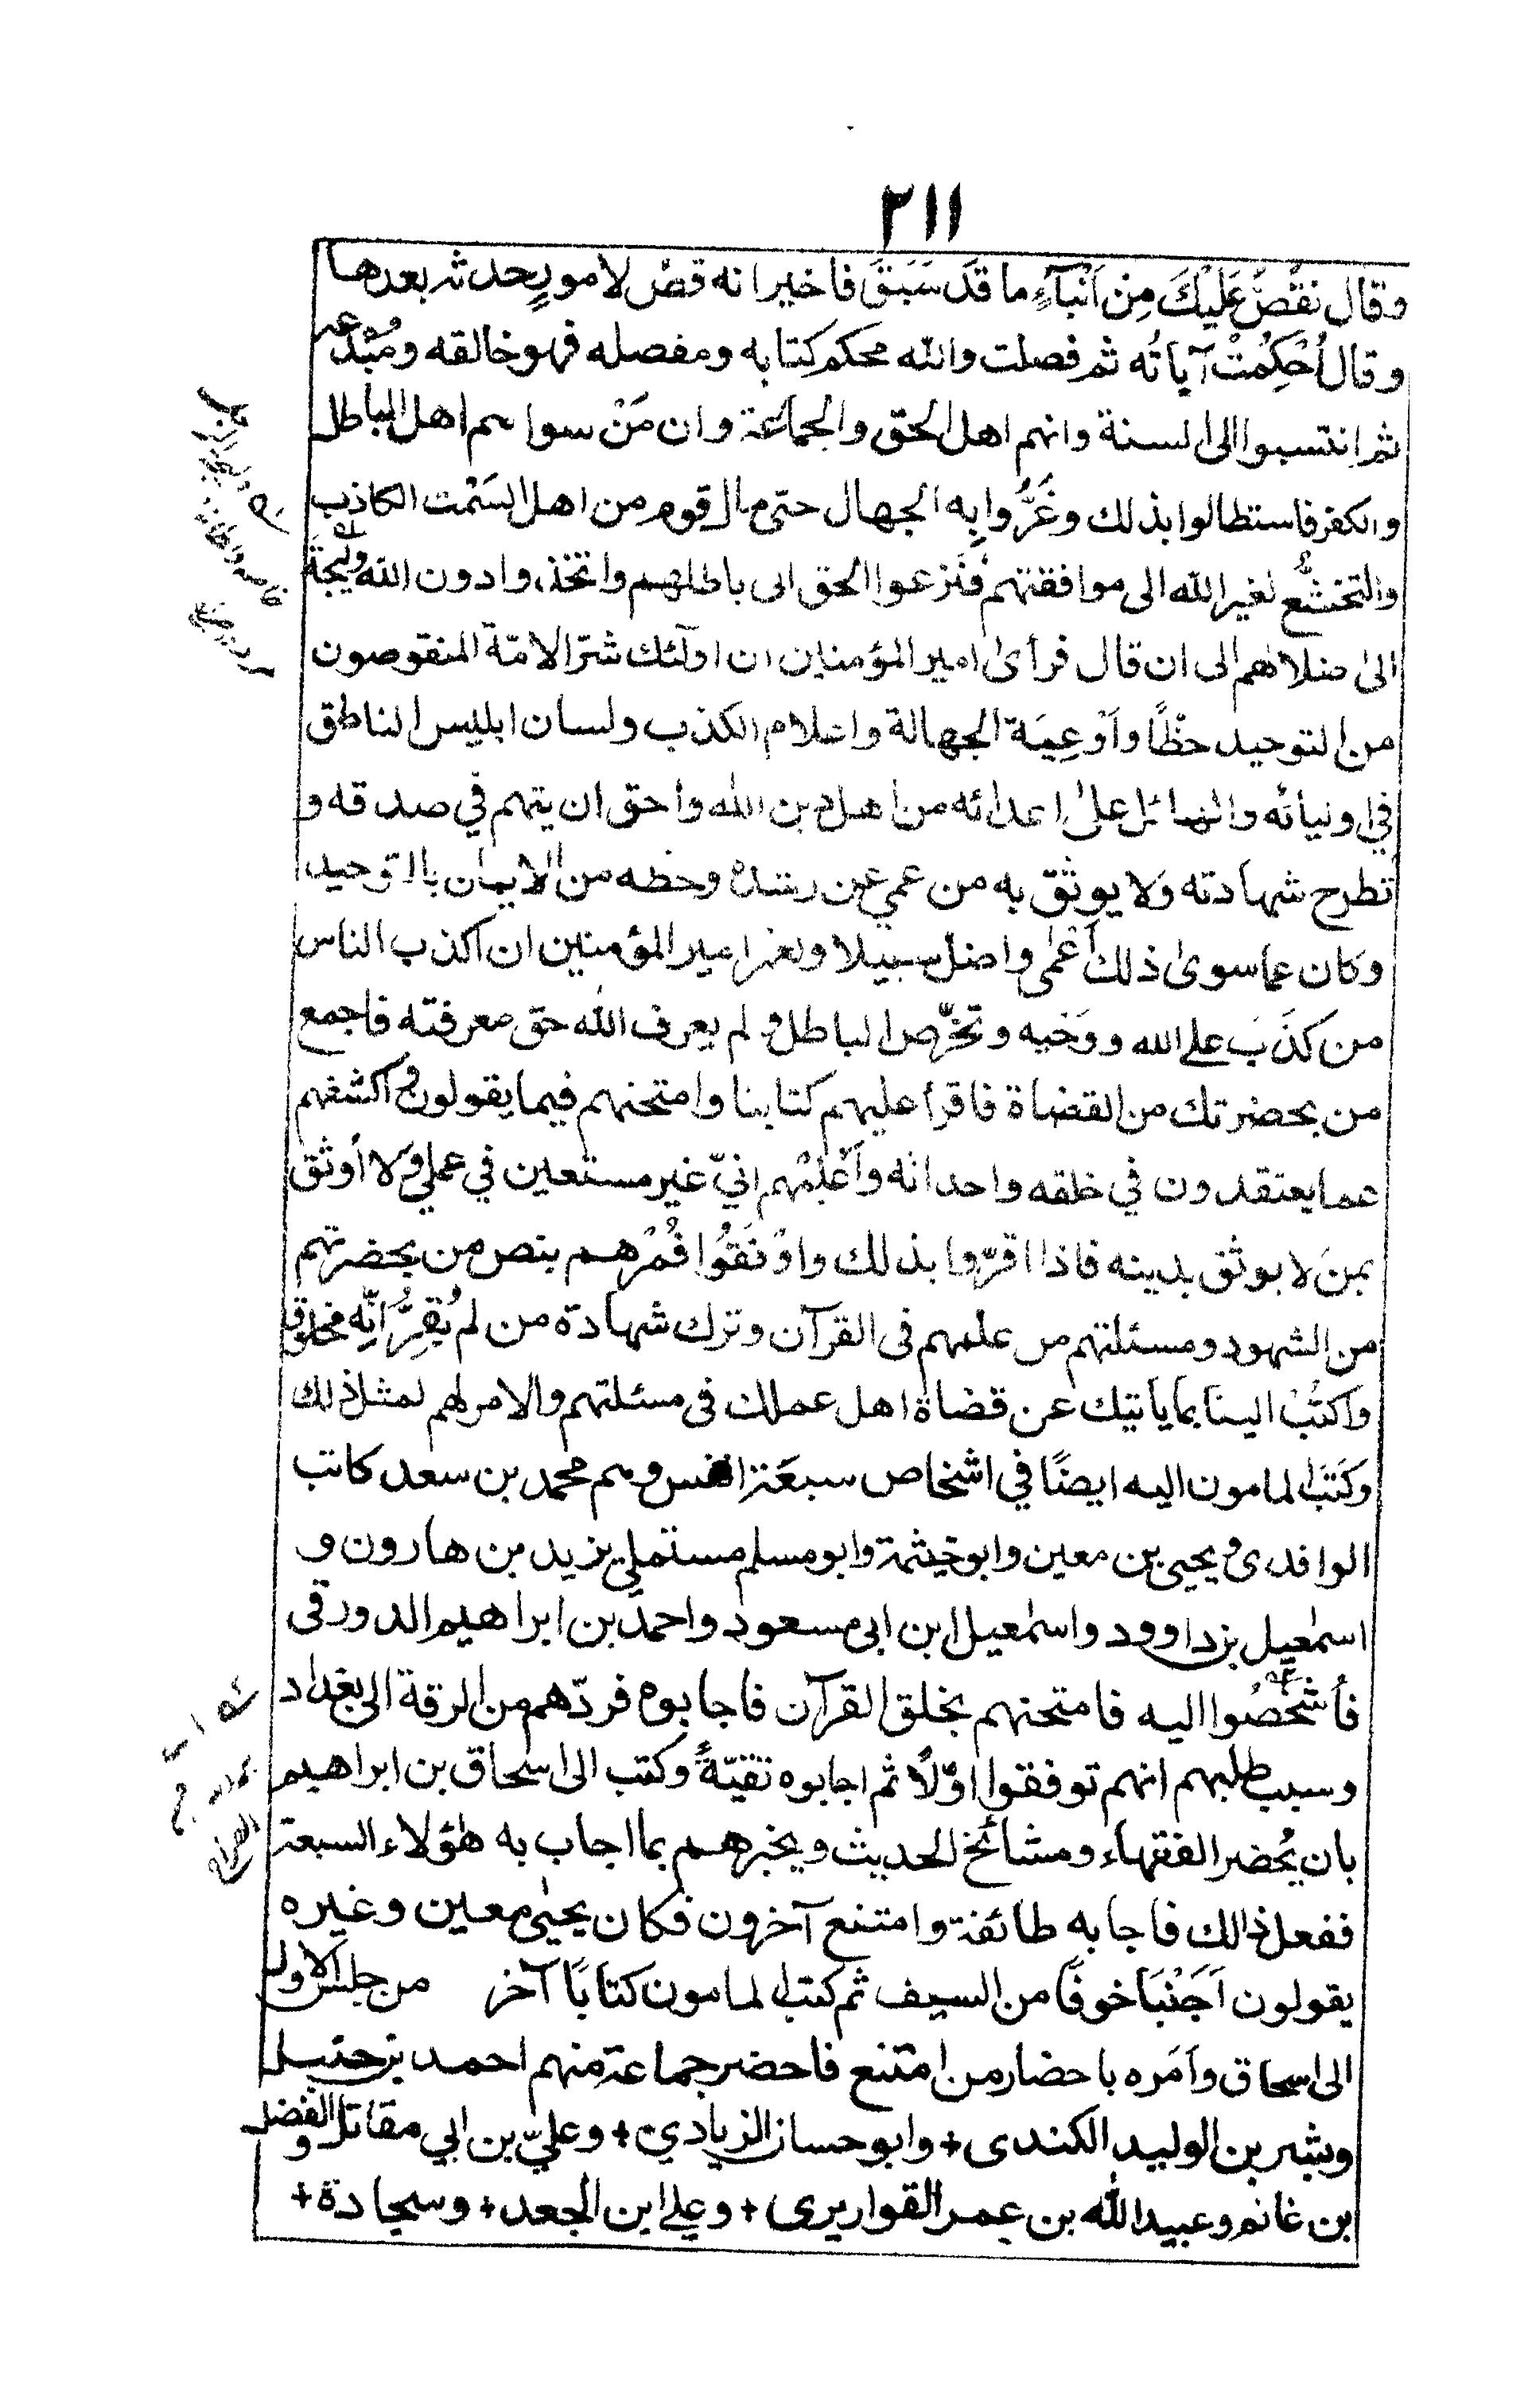 ٢١١
وقال نَقُصُّ عَلَيْكَ مِنْ اَنْبَآءِ ما قَدْ سَبَقَ فاخبر انه قصّ لامورٍ حدثه بعدها
وقال اُحْكِمَتْ آياتُه ثم فصلت والله محكم كتابه ومفصله فهو خالقه ومُبْدعه
ثم انتسبوا الى السنة وانهم اهل الحقّ والجماعة وان مَنْ سواهم اهل الباطل
والكفر فاستطالوا بذلك وغَرُّوا بِه الجهال حتى مال قوم من اهل السَمْت الكاذب
والتخشُّع لغير الله الى موافقتهم فنَزعوا الحق الى باطلهم واتخذوا دون الله وليجةَ
الىٰ ضلالهم الى ان قال فرأىٰ امير المؤمنين ان اولٓئك شرّ الامّة المنقوصون
من التوحيد حظًّا واَوْعِيَة الجهالة واعلام الكذب ولسان ابليس الناطق
في اوليائه والهائل علىٰ اعدائه من اهل دين الله واحق ان يتهم في صدقه و
تُطرح شهادته ولا يوثق به من عمي عين رشده وحظه من الايمان بالتوحيد
وكان عما سوىٰ ذلك اَعْمىٰ واضلّ سبيلا ولعمر امير المؤمنين ان اكذب الناس
من كذَبَ على الله ووَحْيه وتخرّص الباطل ولم يعرف الله حق معرفته فاجمع
من بحضرتك من القضاة فاقرأ عليهم كتابنا وامتحنهم فيما يقولون واكشفهم
عما يعتقدون في خلقه واحداثه وأعْلِمْهم انيّ غير مستعين في عملي ولا أوثق
بمن لا يوثق بدينه فاذا اقرّوا بذلك واوْفَقُوا فمُرْهم بنص من بحضرتهم
من الشهود ومسئلتهم من علمهم فى القرآن وترك شهادة من لم يُقِرُّ انّه مخلوق
واكتُبْ الينا بما يأتيك عن قضاة اهل عملك فى مسئلتهم والامر لهم لمثل ذلك
وكَتَبَ المامون اليه ايضًا في اشخاص سبعَة انفس وهم محمد بن سعد كاتب
الوافدى ويحيى بن معين وابو خيثمة وابو مسلم مستملي يزيد بن هارون و
اسمٰعيل بن داوود واسمٰعيل ابن ابى مسعود واحمد بن ابراهيم الدورقى
فأشخصُوا اليه فامتحنهم بخلق القرآن فاجابوه فردّهم من الرقة الى بغداد
وسبب طلبهم انهم توفقوا اوّلًا ثم اجابوه تقيّةً وكتب الى اسحاق بن ابراهيم
بان يُحضر الفقهاء ومشائخ الحديث ويخبرهم بما اجاب به هٰؤلاء السبعة
ففعل ذالك فاجابه طائفة وامتنع آخرون فكان يحيىٰ معين وغيره
يقولون اَجَبْنَا خوفًا من السيف ثم كتب المامون كتابًا آخر من جلس الاول
الى اسحاق واَمَره باحضار من امتنع فاحضر جماعة منهم احمد بن حنبل
وبشر بن الوليد الكندى + وابو حسان الزيادي + وعليّ بن ابي مقاتل والفضل
بن غانم وعبيد الله بن عمر القواريرى + وعلي ابن الجعد + وسجادة +